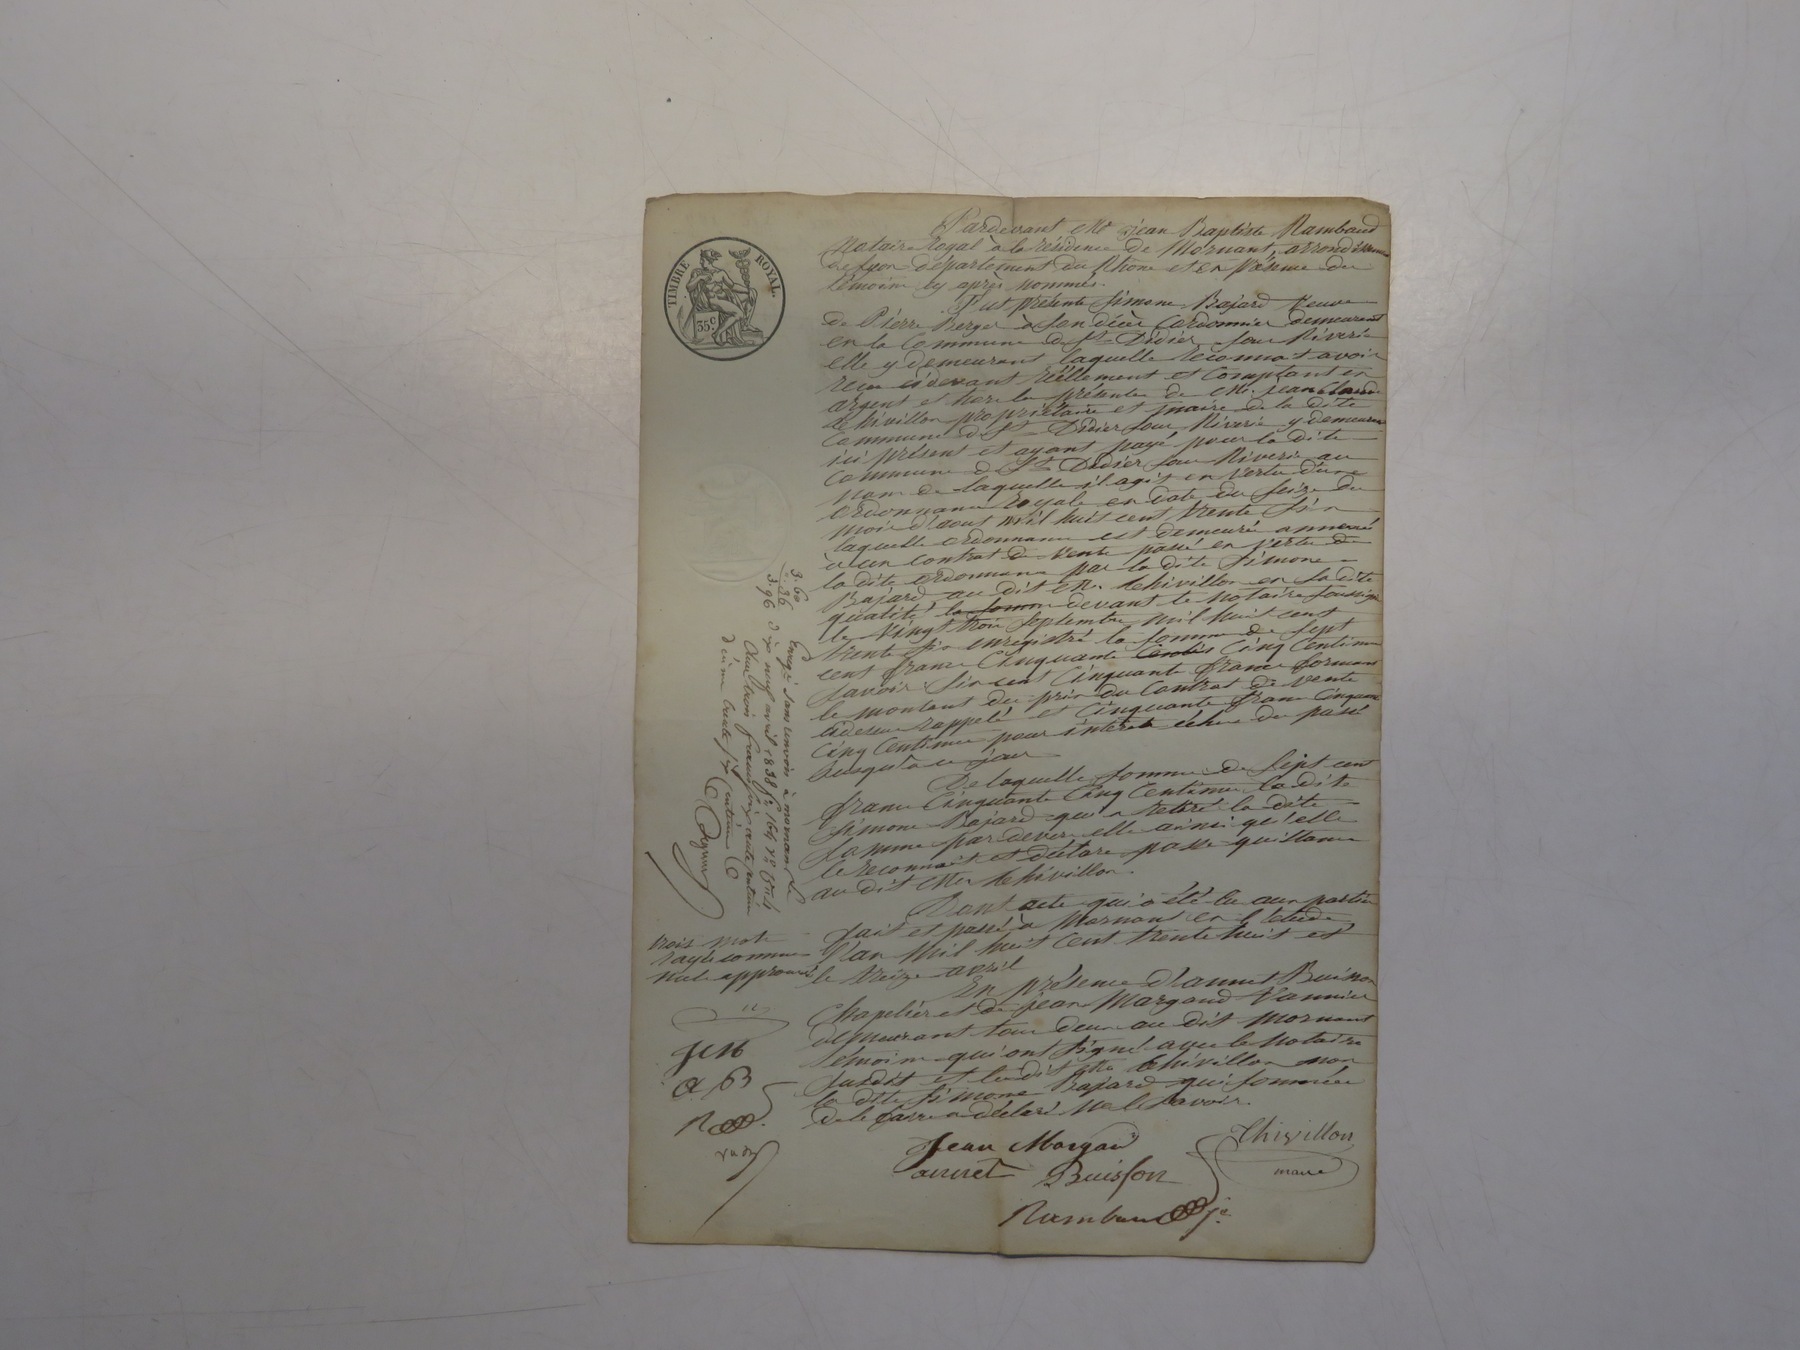 TIMBRE ROYAL
35 c
Pardevant Me jean Baptiste Rambaud
Notaire Royal à la résidence de Mornant, arrondissement
de Lyon département du Rhône et en présence des
témoins cy après nommés.
Fut présente Simone Bajard veuve
de Pierre Berger à son décès Cordonnier demeurant
en la Commune de St Didier sous Riverie
elle y demeurant laquelle reconnait avoir
reçu cidevant réellement et comptant en
argent et hors la présente de Me. jean Claude
Thivillon propriétaire et maire de la dite
Commune de St Didier sous Riverie y demeurant
ici présent et ayant payé pour la dite
Commune de St Didier sous Riverie au
nom de laquelle il agit en vertu d'une
ordonnance Royale en date du seize du
mois d'aout mil huit cent trente six
laquelle ordonnance est demeurée annexée
à un contrat de vente passé en vertu de
la dite ordonnance par la dite Simone
Bajard au dit Me. Thivillon en sa dite
qualité la somme devant le notaire soussigné
le vingt trois septembre mil huit cent
trente six enregistré la somme de sept
cent francs cinquante cinq centimes
savoir six cent cinquante francs formant
le montant du prix du contrat de vente
cidessus rappelé et cinquante francs cinquante
cinq centimes pour intérêts échus du passé
jusqu'à ce jour
De laquelle somme de sept cent
francs cinquante cinq centimes la dite
Simone Bajard qui a retiré la dite
somme pardevers elle ainsi qu'elle
le reconnait et déclare passe quittance
au dit Me Thivillon.
Dont acte qui a été lu aux parties
fait et passé à Mornant en l'étude
l'an mil huit cent trente huit et
le treize avril
En présence d'annet Buisson
Chapelier et de jean Margand Vannier
demeurant tous deux au dit Mornant
témoins qui ont signé avec le notaire
susdit et le dit Me Thivillon non
la dite Simone Bajard qui sommée
de le faire a déclaré ne le savoir.
Jean Margand
annet Buisson
Thivillon
maire
Rambaud
3.60
.36
3.96
Enregé sans renvoi à mornant le
dix neuf avril 1838 fo 164 Ro
Reçu trois francs soixante centimes
décime trente six centimes
trois mots
rayés comme
nuls approuvé
JM
a B
R